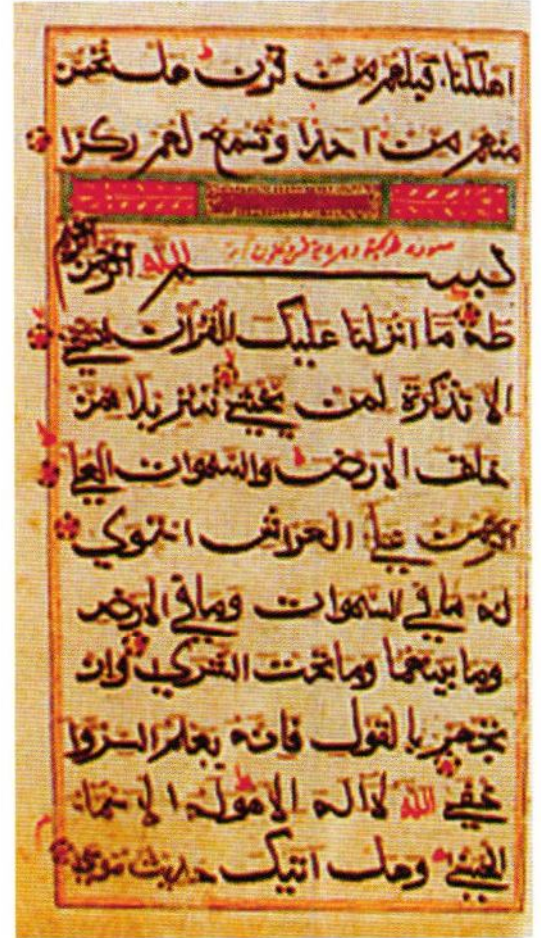 اهلكنا قبلهم من قرن هل تحس
منهم من احد ا وتسمع لهم ركزا
بسم الله الرحمن الرحيم
طه ما انزلنا عليك القران لتشقي
الا تذكرة لمن يخشي تنزيلا ممن
خلق الارض والسموات العلي
الرحمن علي العرش استوي
له ما في السموات وما في الارض
وما بينهما وما تحت الثري وان
تجهر بالقول فانه يعلم السر وا
خفي الله لا اله الا هو له الا سماء
الحسني وهل اتيك حديث موسي